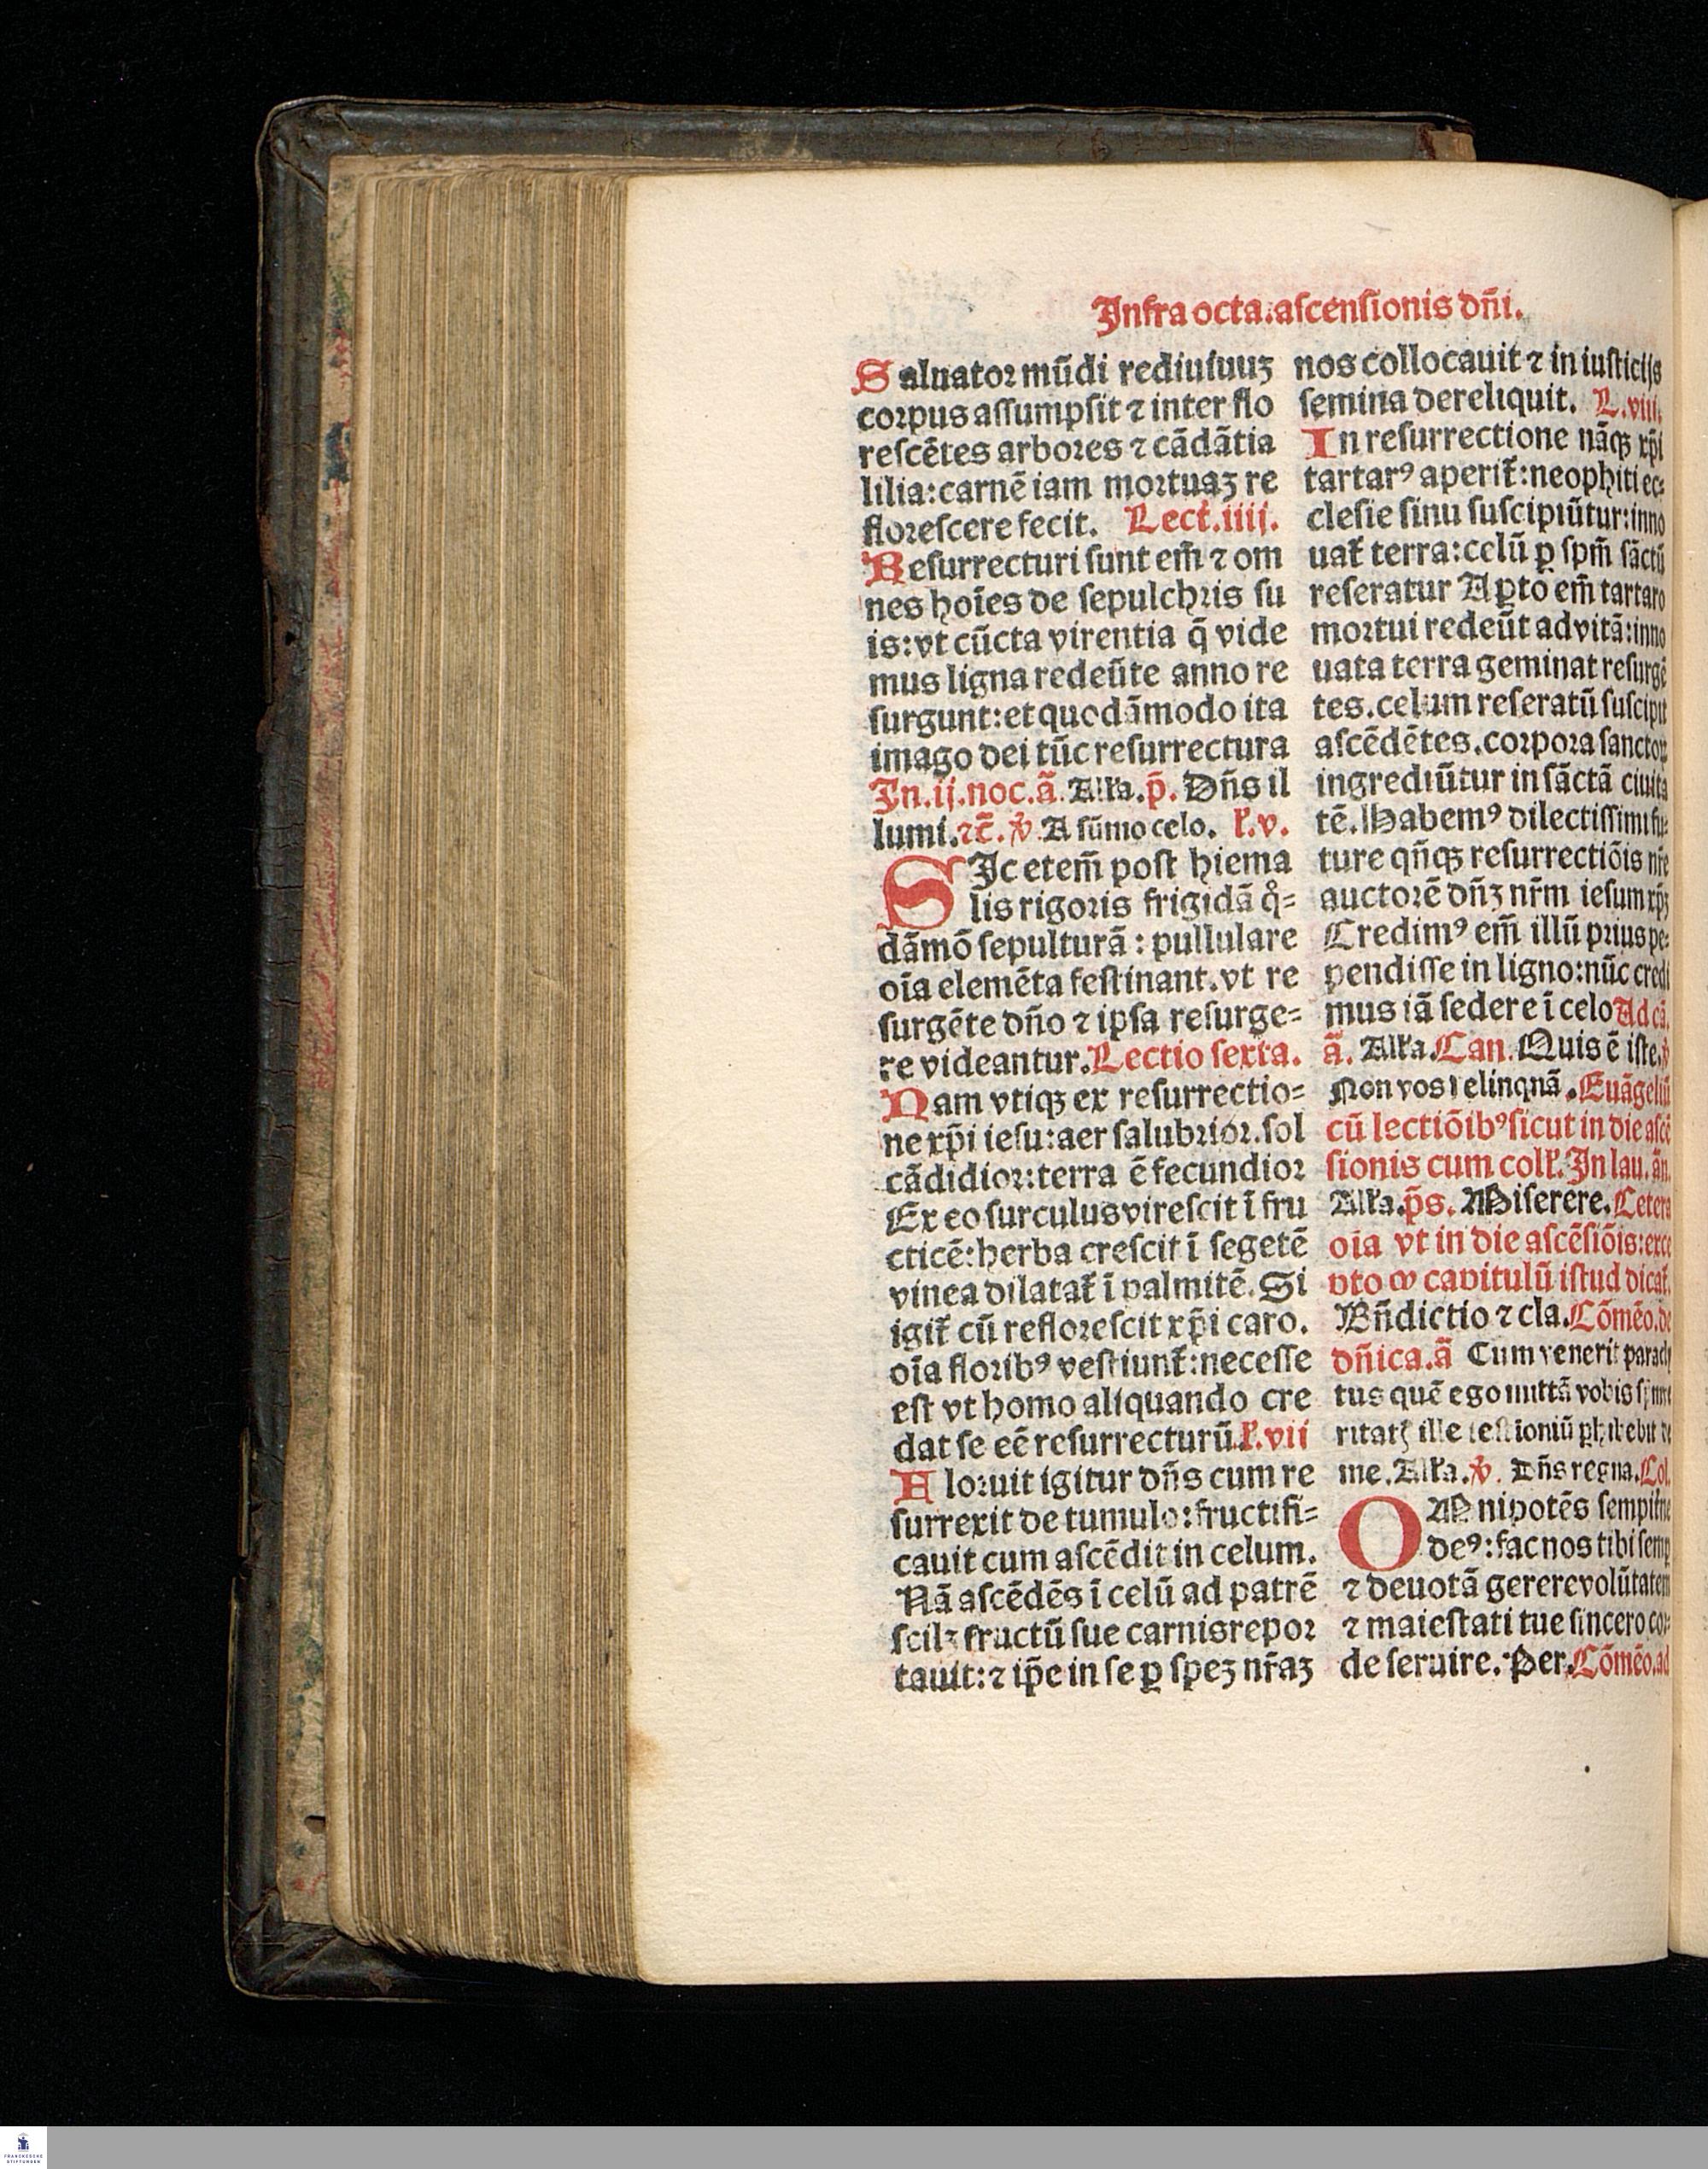 Infra octa.ascensionis dñi.
Saluator mũdi rediuiuuꝫ
corpus assumpsit ⁊ inter flo
rescẽtes arbores ⁊ cãdãtia
lilia:carnẽ iam mortuaꝫ re
florescere fecit. Lect̃.iiij.
Resurrecturi sunt em̃ ⁊ om
nes hoĩes de sepulchris su
is:vt cũcta virentia q̃ vide
mus ligna redeũte anno re
surgunt:et quodãmodo ita
imago dei tũc resurrectura
In.ij.noc.ã. Alľa.p̃. Dñs il
lumi.⁊c̃. ℣. A sũmo celo. ľ.v.
SIc etem̃ post hiema
lis rigoris frigidã qͦ=
dãmõ sepulturã : pullulare
oĩa elemẽta festinant.vt re
surgẽte dño ⁊ ipsa resurge=
re videantur.Lectio sexta.
Nam vtiqꝫ ex resurrectio=
ne xp̃i iesu:aer salubrior.sol
cãdidior:terra ẽ fecundior
Ex eo surculus virescit ĩ fru
cticẽ:herba crescit ĩ segetẽ
vinea dilatat̃ ĩ palmitẽ. Si
igit̃ cũ reflorescit xp̃i caro.
oĩa floribꝰ vestiunt̃:necesse
est vt homo aliquando cre
dat se eẽ resurrecturũ.ľ.vii
Floruit igitur dñs cum re
surrexit de tumulo:fructifi=
cauit cum ascẽdit in celum.
Nã ascẽdẽs ĩ celũ ad patrẽ
scilꝫ fructũ sue carnis repor
tauit:⁊ ip̃e in se ꝑ speꝫ nr̃aꝫ
nos collocauit ⁊ in iusticijs
semina dereliquit. L.viii.
In resurrectione nãqꝫ xp̃i
tartarꝰ aperit̃:neophiti ec=
clesie sinu suscipiũtur:inno
uat̃ terra:celũ ꝑ sp̃m sãctũ
reseratur Aꝑto em̃ tartaro
mortui redeũt ad vitã:inno
uata terra geminat resurgẽ
tes.celum reseratũ suscipit
ascẽdẽtes.corpora sanctoꝝ
ingrediũtur in sãctã ciuita
tẽ. Habemꝰ dilectissimi fu=
ture qñqꝫ resurrectiõis nr̃e
auctorẽ dñꝫ nr̃m iesum xp̃ꝫ
Credimꝰ em̃ illũ prius pe=
pendisse in ligno:nũc credi
mus iã sedere ĩ celo Ad cã.
ã. Alľa.Can. Quis ẽ iste.℣
Non vos relinquã .Euãgeliũ
cũ lectiõibꝰ sicut in die ascẽ
sionis cum colľ.In lau.ãn.
Alľa.p̃s. Miserere.Cetera
oĩa vt in die ascẽsiõis:exce
pto ꝙ capitulũ istud dicat̃.
Bñdictio ⁊ cla.Cõmẽo.de
dñica.ã Cum venerit paracly
tus quẽ ego mittã vobis
ille
me.Alľa.℣. Dñs regna.Col.
OMnipotẽs sempit̃ne
deꝰ:fac nos tibi semꝑ
⁊ deuotã gerere volũtatem
⁊ maiestati tue sincero cor=
de seruire. Per.Cõmẽo.ad
FRANCKESCHE
STIFTUNGEN